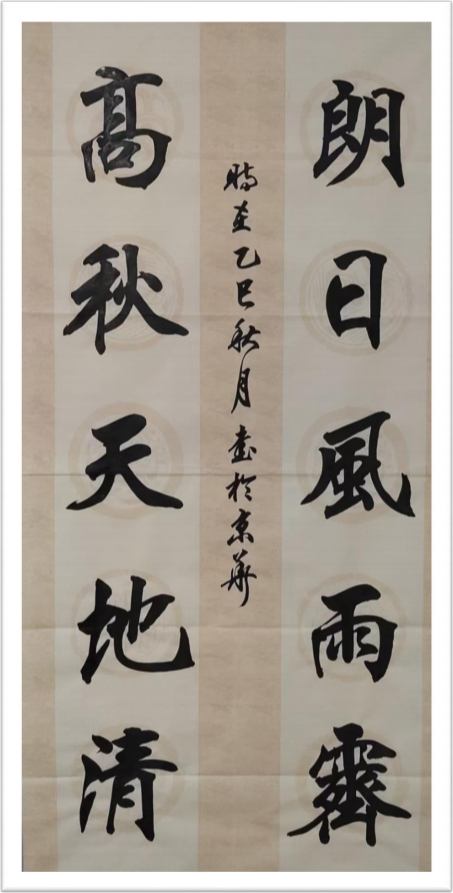 朗日風雨霽
時在乙巳秋月書於京華
高秋天地清